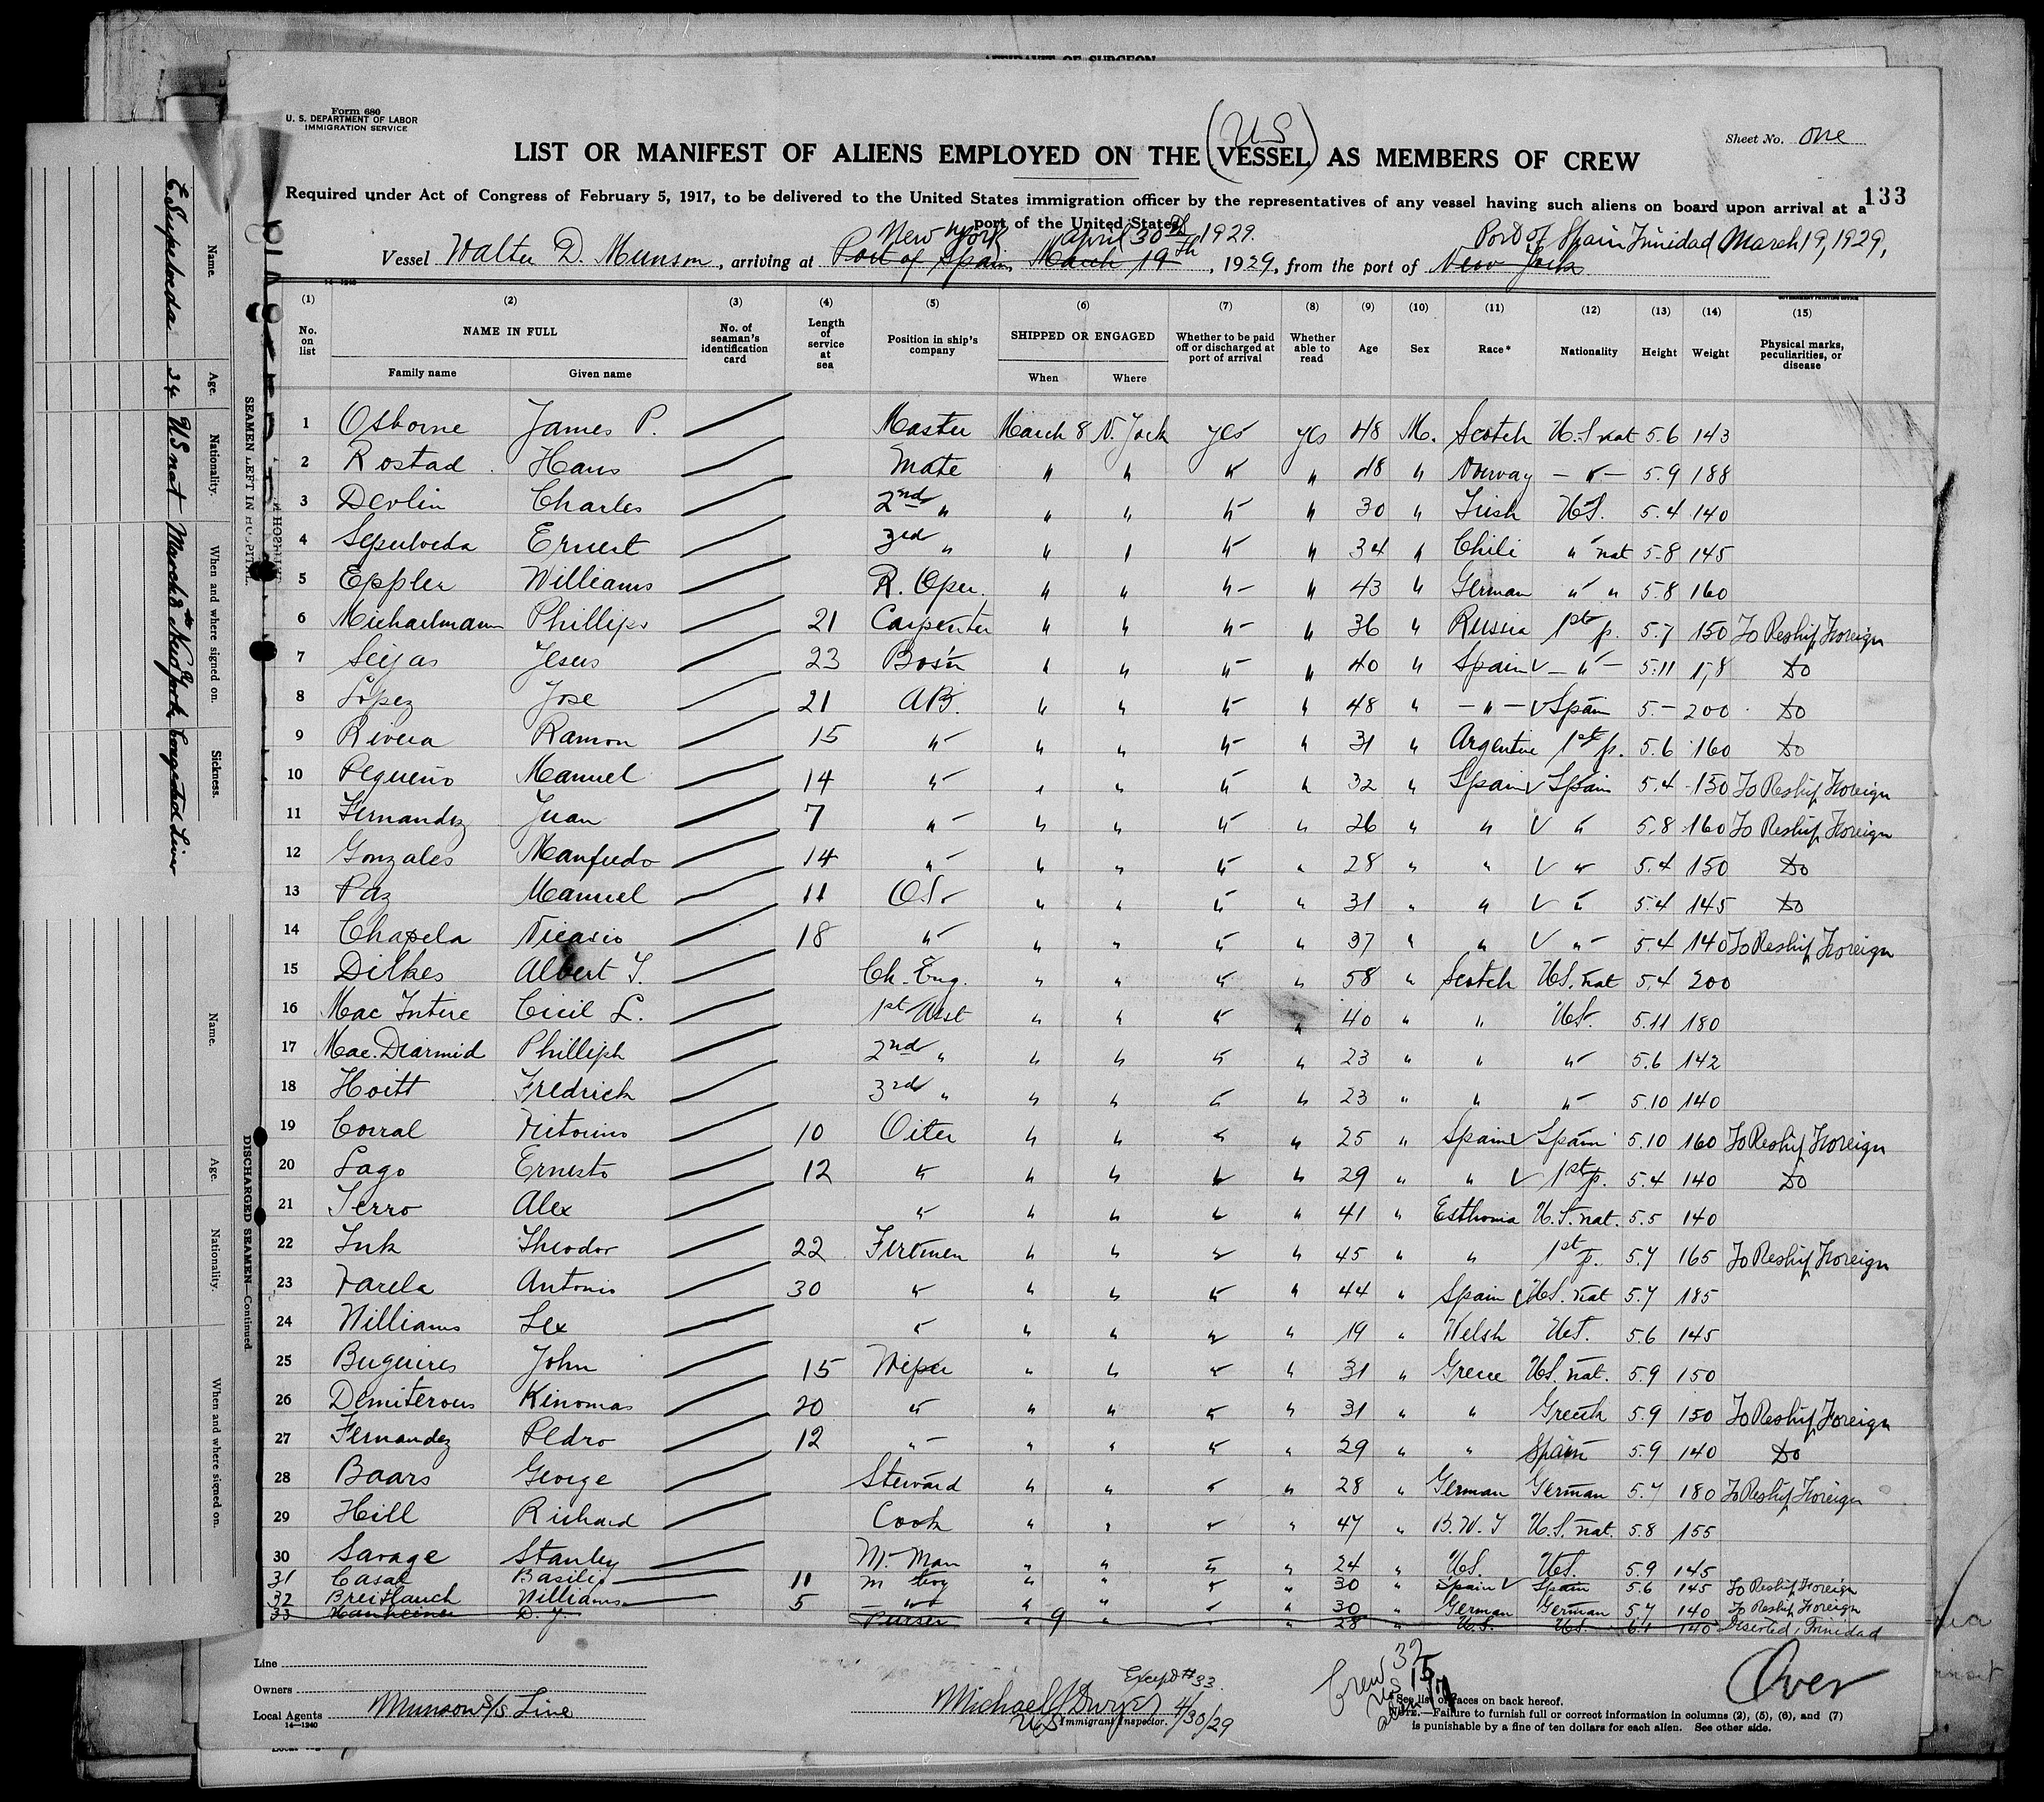 AFFIDAVIT OF SURGEON
Form 680
U. S. DEPARTMENT OF LABOR
IMMIGRATION SERVICE
(US)
Sheet No. One
LIST OR MANIFEST OF ALIENS EMPLOYED ON THE VESSEL AS MEMBERS OF CREW
133
Required under Act of Congress of February 5, 1917, to be delivered to the United States immigration officer by the representatives of any vessel having such aliens on board upon arrival at a
port of the United States
New York April 30th 1929. Port of Spain Trinidad March 19, 1929,
Vessel Walter D. Munson, arriving at Port of Spain, March 19th, 1929, from the port of New York
14-1240
GOVERNMENT PRINTING OFFICE
(1) (2) (3) (4) (5) (6) (7) (8) (9) (10) (11) (12) (13) (14) (15)
No. on list NAME IN FULL Family name Given name No. of seaman's identification card Length of service at sea Position in ship's company SHIPPED OR ENGAGED When Where Whether to be paid off or discharged at port of arrival Whether able to read Age Sex Race* Nationality Height Weight Physical marks, peculiarities, or disease
1 Osborne James P. Master March 8 N. York yes yes 48 M. Scotch U.S nat 5.6 143
2 Rostad Hans Mate " " " " 48 " Norway - " - 5.9 188
3 Devlin Charles 2nd " " " " " 30 " Irish U.S. 5.4 140
4 Sepulveda Ernest 3rd " " " " " 34 " Chili " nat 5.8 145
5 Eppler Williams R. Oper. " " " " 43 " German " " 5.8 160
6 Michaelmann Phillips 21 Carpenter " " " " 36 " Russia 1st p. 5.7 150 To Reship Foreign
7 Seijas Jesus 23 Bos'n " " " " 40 " Spain V - " - 5.11 Do
8 Lopez Jose 21 AB. " " " " 48 " - " - V Spain 5.- 200 Do
9 Rivera Ramon 15 " " " " " 31 " Argentine 1st p. 5.6 160 Do
10 Pequeño Manuel 14 " " " " " 32 " Spain V Spain 5.4 130 To Reship Foreign
11 Fernandez Juan 7 " " " " " 26 " " V " 5.8 160 To Reship Foreign
12 Gonzales Manfredo 14 " " " " " 28 " " V " 5.4 150 Do
13 Paz Manuel 11 O.S. " " " " 31 " " V " 5.4 145 Do
14 Chapela Nicasio 18 " " " " " 37 " " V " 5.4 140 To Reship Foreign
15 Dilkes Albert T. Ch. Eng. " " " " 58 " Scotch U.S. nat 5.4 200
16 Mac Intire Cicil L. 1st Asst " " " " 40 " " U.S. 5.11 180
17 Mac.Diarmid Philliph 2nd " " " " " 23 " " " 5.6 142
18 Hoitt Fredrich 3rd " " " " " 23 " " " 5.10 140
19 Corral Vitorino 10 Oiler " " " " 25 " Spain V Spain 5.10 160 To Reship Foreign
20 Lago Ernesto 12 " " " " " 29 " " V 1st p. 5.4 140 Do
21 Terro Alex " " " " " 41 " Esthonia U.S. nat. 5.5 140
22 Ink Theodor 22 Firemen " " " " 45 " " 1st p. 5.7 165 To Reship Foreign
23 Varela Antonio 30 " " " " " 44 " Spain V U.S. nat 5.7 185
24 Williams Lex " " " " " 19 " Welsh U.S. 5.6 145
25 Buguires John 15 Wiper " " " " 31 " Grece U.S. nat. 5.9 150
26 Demiterous Kinomas 20 " " " " " 31 " " Greek 5.9 150 To Reship Foreign
27 Fernandez Pedro 12 " " " " " 29 " " Spain 5.9 140 Do
28 Baars George Steward " " " " 28 " German German 5.7 180 To Reship Foreign
29 Hill Richard Cook " " " " 47 " B.W.I U.S. nat. 5.8 155
30 Savage Stanley M. Man " " " " 24 " U.S. U.S. 5.9 145
31 Casal Basilio 11 m boy " " " " 30 " Spain V Spain 5.6 145 To Reship Foreign
32 Breitlauch Williams 5 " " " " " 30 " German German 5.7 140 To Reship Foreign
33 D. J. Purser " 9 " " " 28 " U.S. U.S. 6.1 140 Deserted, Trinidad
Line
Owners
Local Agents Munson S/S Line
14-1240
Except #33.
Michael J Dwyer 4/30/29
US Immigrant Inspector.
Crew 32
US 15
alien 17
Over
*See list of races on back hereof.
NOTE.—Failure to furnish full or correct information in columns (2), (5), (6), and (7)
is punishable by a fine of ten dollars for each alien. See other side.
SEAMEN LEFT IN HOSPITAL.
Name. Age. Nationality. When and where signed on. Sickness.
E Sepulveda 34 US nat March 8th New York Congested Liver
DISCHARGED SEAMEN—Continued.
Name. Age. Nationality. When and where signed on.